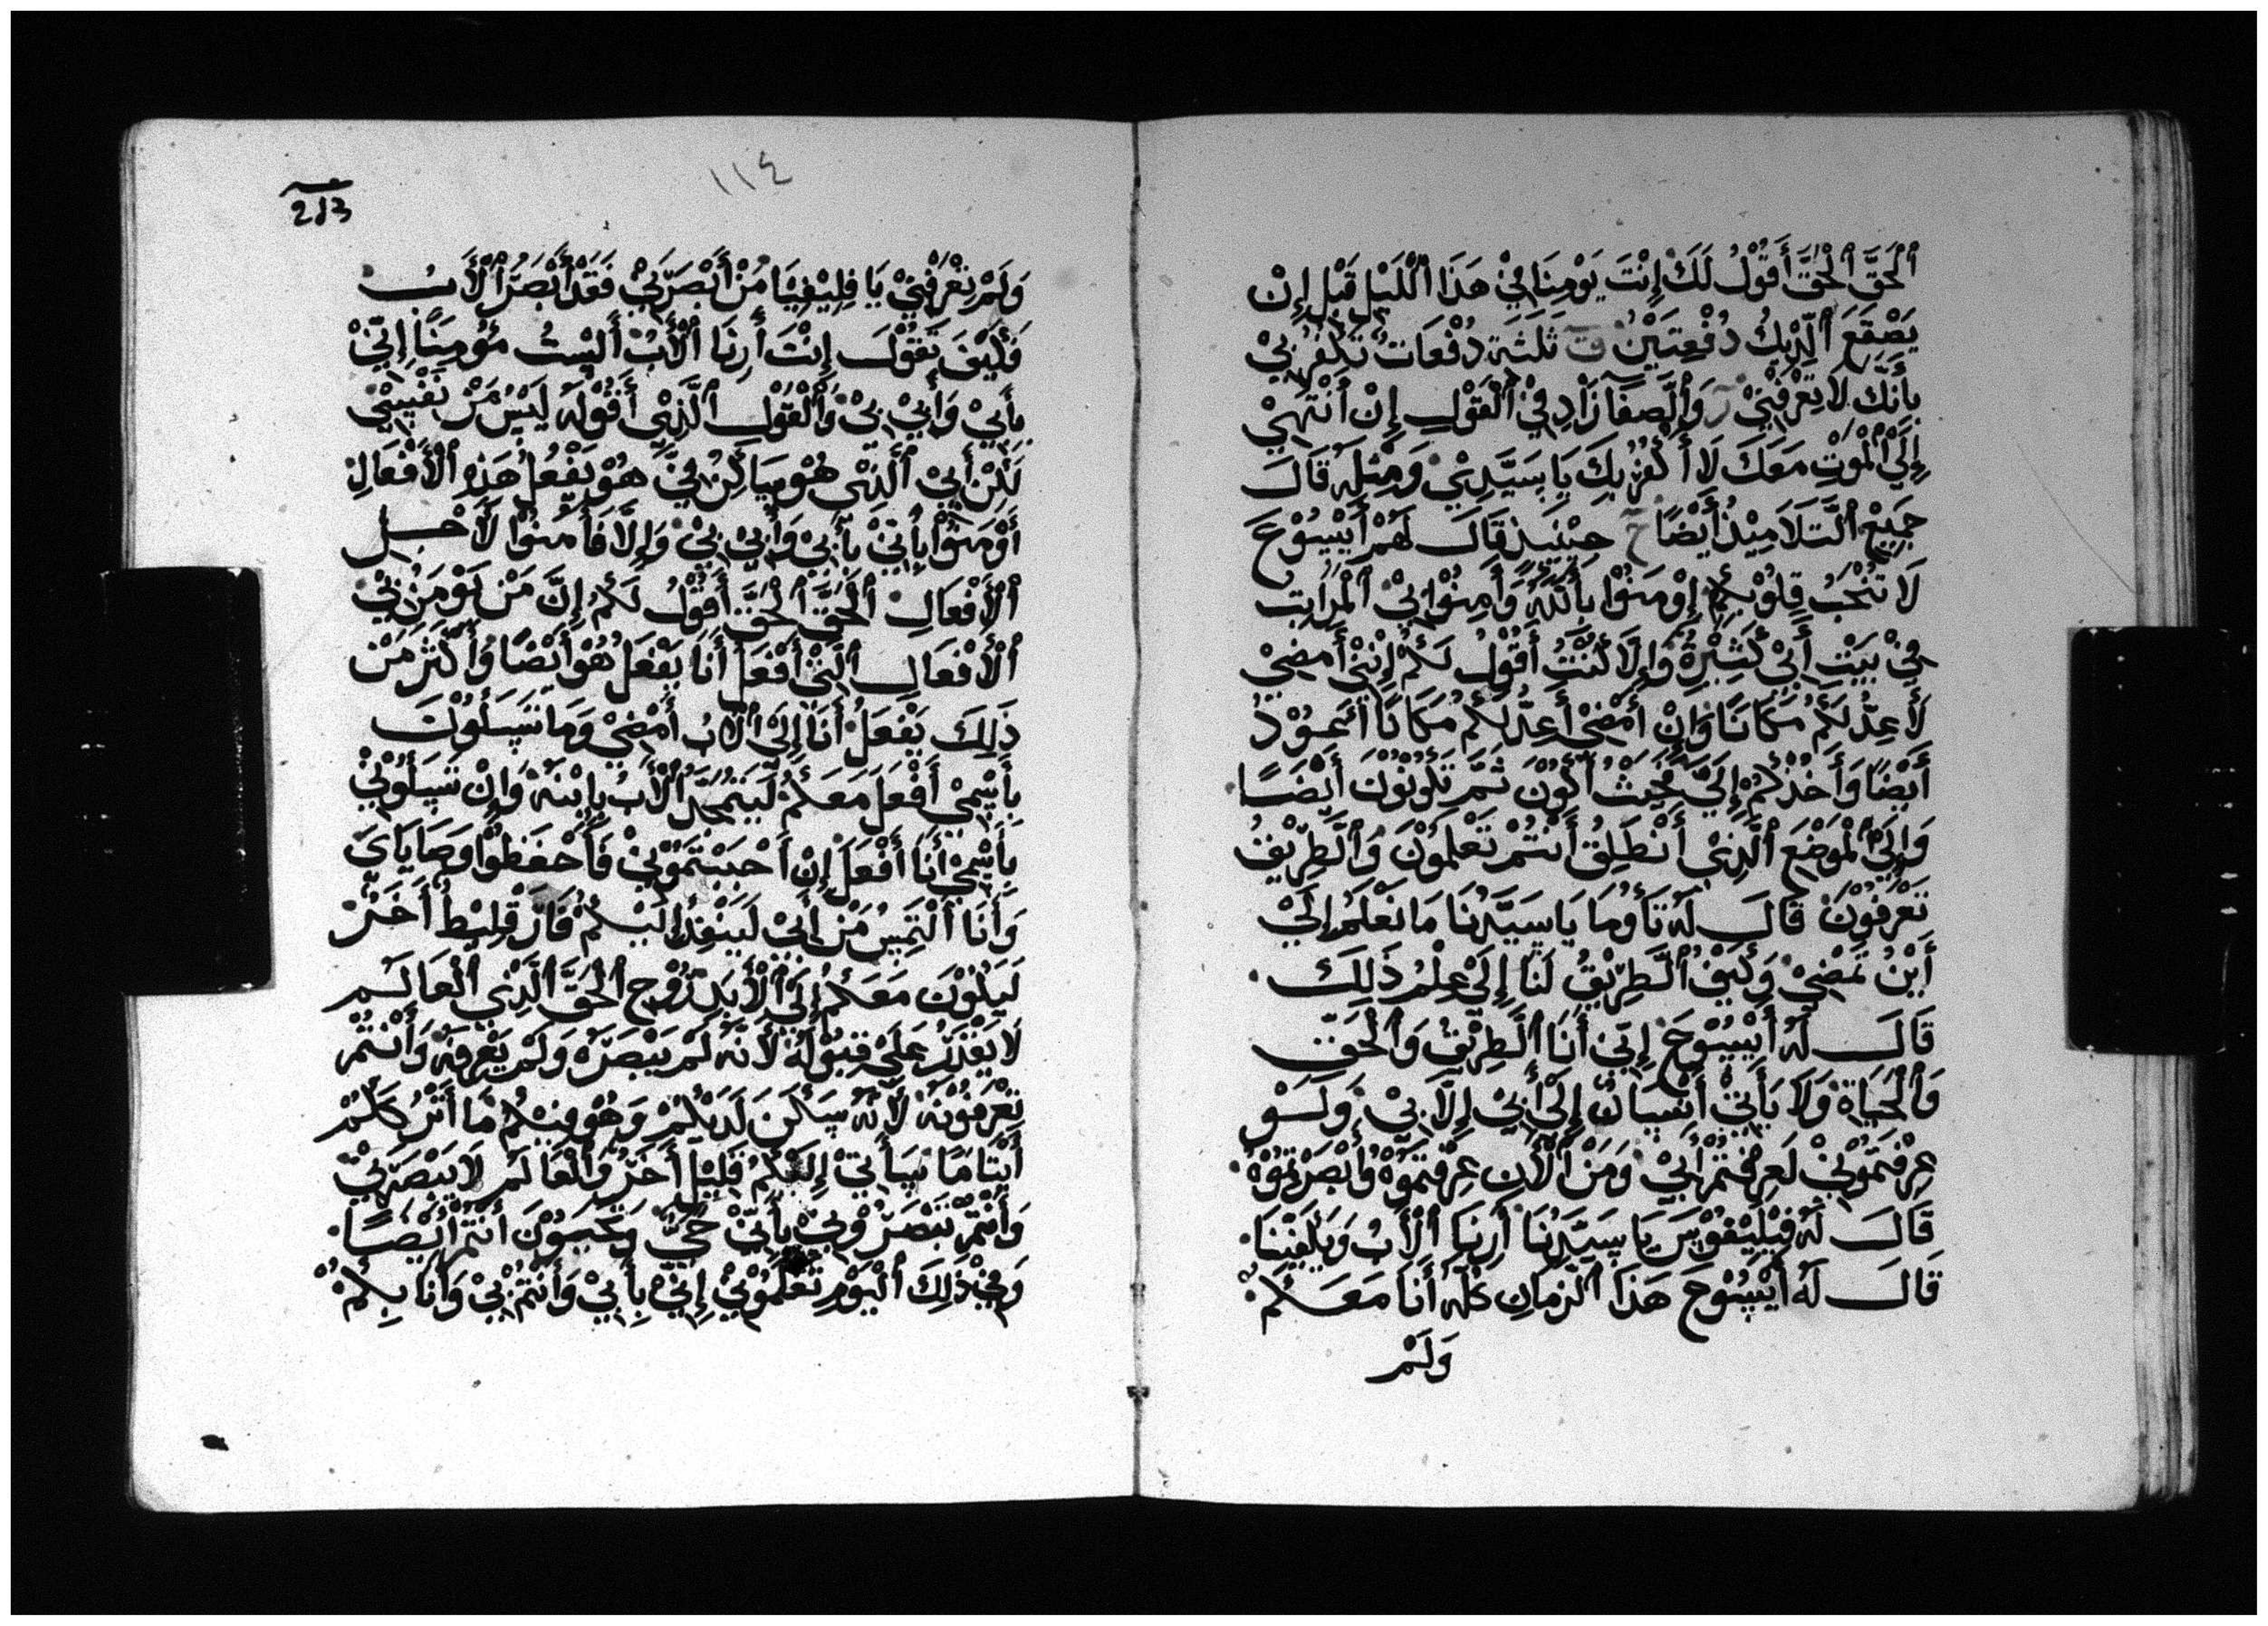 اَلْحَقَّ اَلْحَقَّ أَقُوْلُ لَكَ إِنْتَ يَوْمِنَا فِيْ هَذَا اَللَّيْلِ قَبْلِ إِنْ
يَصْقَعَ اَلدِّيْكُ دُفْعِتَيْنْ ق ثَلَثَةِ دُفْعَاتْ تَكْفُرُ بِيْ
بِأَنَّكَ لَا تِعْرِفْنِيْ ر وَاَلصَّفَا زَادِ فِيْ اَلْقَوْلِ إِنْ أَنْتَهِيْ
إِلَىْ اَلْمَوْتِ مَعَكَ لَا أَكْفُرْ بِكَ يَا سَيَّدِيْ وَمِثْلَهُ قَالَ
جَمِيْعْ اَلتَّلَامِيْذُ أَيْضًا ح حِيْنَيِذٍ قَالَ لَهُمْ أَيْيسُوْعَ
لَا تُنْخَبُ قِلُوْبِكُمْ إِوْمِنُوْا بِاَللَّهِ وَأَمِنُوْا بِيْ اَلْمَرَاتِبْ
فِيْ بَيْتِ أَبِيْ كَثِيْرَةً وَإِلَّا كُنْتُ أَقُوْلُ لَكُمْ إِنَّنِيْ أَمْضِيْ
لَأَ عِدُّ لَكُمْ مَكَانًا وَإِنْ أَمْضِيْ أَعِدُّ لَكُمْ مَكَانًا أَعُوْدُ
أَيْضًا وَأَخُذْكُمْ إِلَيَّ بِحَيْثُ أَكُوْنَ ثَمَّ تَكُوْنُوْنَ أَيْضًا
وَإِلَىْ اَلْمَوْضَعِ اَلَّذِيْ أَنْطَلِقُ أَنْتُمْ تَعْلَمُوْنَ وَاَلطَّرِيْقُ
تَعْرِفُوْنَ قَالَ لَهُ تَأُوْمَا يَا سَيَّدُنَا مَا نَعْلَمُ إِلَىْ
أَيْنُ تَمْضِيْ وَكَيْفُ اَلطَّرِيْقُ لَنَا إِلَىْ عِلْمُ ذَلِكَ
قَالَ لَهُ أَيْيسُوْعَ إِنِّيْ أَنَا اَلطَّرِيْقُ وَاَلْحَقّ
وَاَلْحَيَاةِ وَلَا يَأْتِيْ أَنْسَانٌ إِلَىْ أَبِيْ إِلَّا بِيْ وَلَوْ
عِرْفِتَمُوْنِيْ لَعِرِفْتَمْ أَبِيْ وَمَنْ اَلْأَنِ عِرِفْتَمُوْهُ وَأَبْصَرْتِمُوْهُ
قَالَ لَهُ فِيْلِيْفُوْسَ يَا سَيَّدِنَا أَرِنَا اَلْأَبُ وَيَكْفِيْنَا
قَالَ لَهُ أَيْيسُوْعَ هَذَا اَلزَمَانِ كُلَّهُ أَنَا مَعَكُمْ
وَلَمْ
١١٤
213
وَلَمْ تِعْرَفْنِيْ يَا فِلِيْفِيْا مَنْ أَبْصَرَنِيْ فَقَدْ أَبْصَرَ اَلْأَبُ
فَكَيْفَ تَقُوْلَ إِنْتَ أَرِنَا اَلْأَبُ أَلَيْسْتُ مُؤْمِنًا إِنِّيْ
بِأَبِيْ وَأَبِيْ بِيْ وَاَلْقَوْلِ اَلَّذِيْ أَقُوْلَهُ لَيْسُ مَنْ نَفْيسِيْ
لَكِنْ أَبِيْ اَلَّذِيْ هُوْ سَاكِنُ فِيَّ هُوْ يَفْعُلُ هَذِهِ اَلْأَفْعَالِ
أَوْمِنُوْا بِإِنِّيْ بِأَبِيْ وَأَبِيْ بِيْ وَإِلَّا فَأَمُنُوْا لَأَجِلِ
اَلْأَفْعَالِ اَلْحَقَّ اَلْحَقَّ أَقُوْلُ لَكُمُ إِنَّ مَنْ يَوْمَنُ بِيْ
اَلْأَفْعَالِ اَلَّتِيْ أَفْعَلَ أَنَا يَفْعَلُ هُوْ أَيْضًا وَأَكْثَرْ مَنْ
ذَلِكَ يَفْعَلُ أَنَا إِلَىْ اَلْأَبُ أَمْضِيْ وَمَا تَسَلُوْنَ
بِأَسْمِيْ أَفْعَلَ مَعَكُمُ لَيَتَمَجَّدُ اَلْأَبُ بِابْنَهْ وَإِنْ تَسَلُوْنِيْ
بِأَسْمِيْ أَنَا أَفْعَلَ إِنْ أَحْبَبْتَمُوْنِيْ فَأَحْفَظُوْا وَصَايَايَ
وَأَنَا أَلْتَمِسُ مَنْ أَبِيْ لَيَنْفِذُ إِلَيْكُمْ فَارَقِلِيْطُ أَخَرْ
لَيَكُوْنَ مَعَكُمُ إِلَىْ اَلْأَبَدِ رُوْحِ اَلْحَقَّ اَلَّذِيْ اَلْعَالَمِ
لَا يَقْدَرْ عَلَىْ قِبُوْلَهُ لَأَنَهُ لَمْ يَبْصَرَهُ وَلَمْ يَعْرِفَهُ وَأَنْتُمْ
تِعْرَفُوْنَهُ لَأَنَّهُ سَكَنَ لَدَيْكُمْ وَهُوْ فِيْكُمْ مَا أَتْرُكَكُمْ
أَيْتَامًا سَأَتِيْ إِلَيْكُمْ قَلِيْلِ أَخَرْ وَاَلْعَالَمِ لَا يَبْصَرَنِيْ
وَأَنْتُمْ تَبْصَرُوْنِيْ بِأَنِّيْ حَيٌّ وَتَحْيَوْنَ أَنْتُمْ أَيْضًا
وَفِيْ ذَلِكَ اَلْيَوْمِ تَعْلَمُوْنِيْ إِنِّيْ بِأَبِيْ وَأَنْتُمْ بِيْ وَأَنَا بِكُمْ